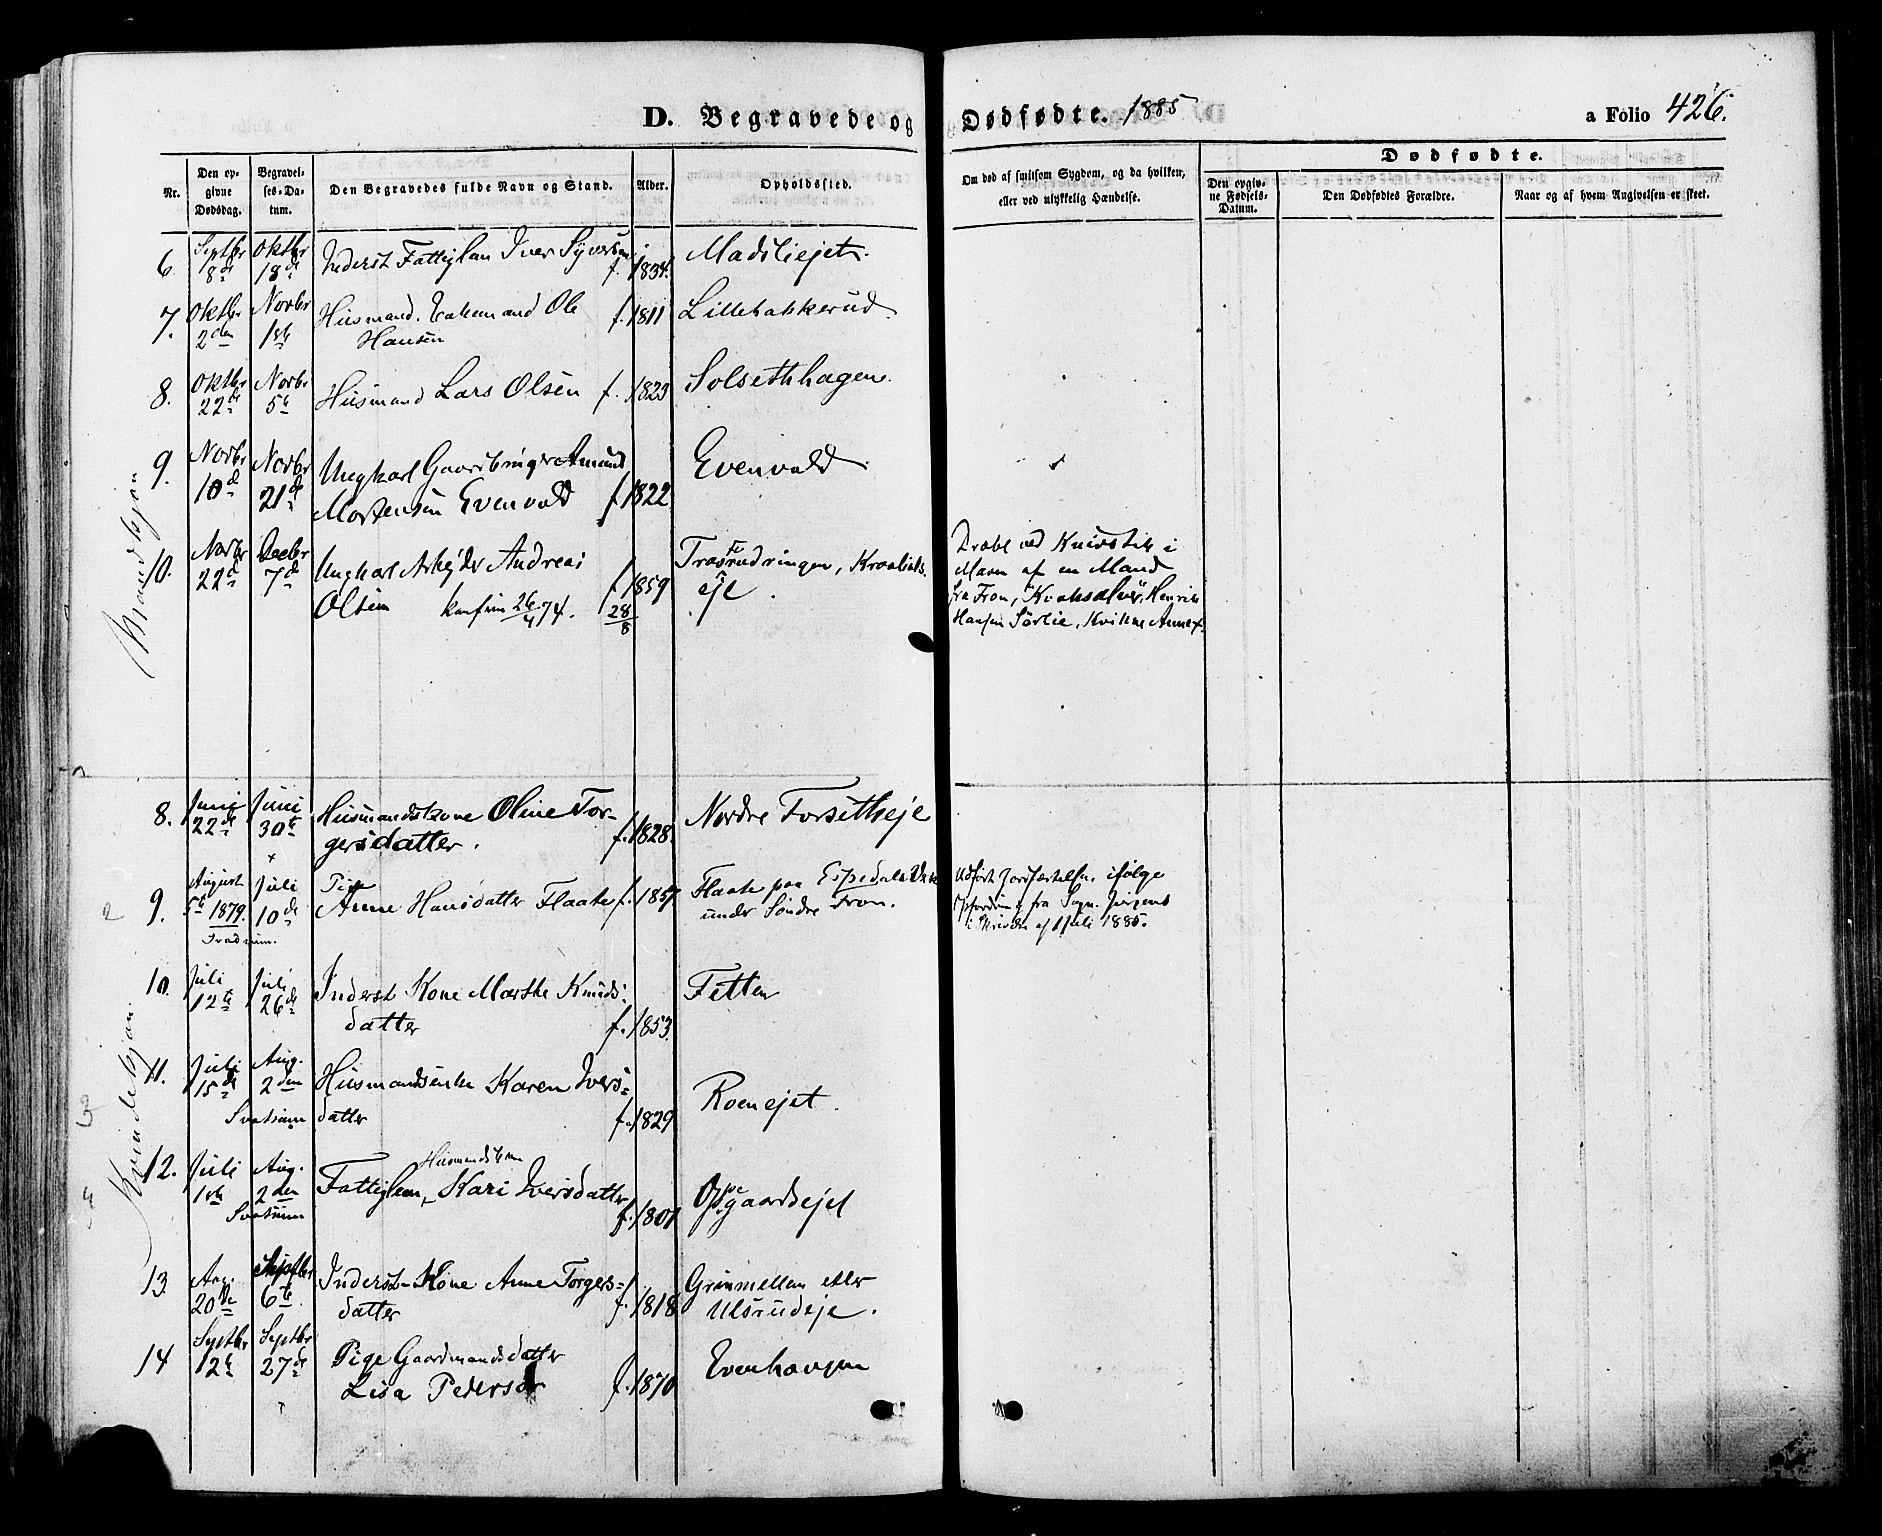 D. Begravede og Dødfødte. 1885
a Folio 426.
Nr.
Den opgivne Dødsdag.
Begravelses-Datum.
Den Begravedes fulde Navn og Stand.
Alder.
Opholdssted.
Om død af smitsom Sygdom, og da hvilken, eller ved ulykkelig Hændelse.
Dødfødte.
Den opgivne Fødsels-Datum.
Den Dødfødtes Forældre.
Naar og af hvem Angivelsen er skeet.
Mandkjøn
6. Septbr 8de Oktbr 18de Inderst Fattiglem Iver Syversen f. 1834. Madsliejet.
7. Oktbr 2den Novbr 1ste Husmand Ole
Hansen f. 1811 Lillehakkerud
8. Oktbr 22de Novbr 5te Husmand Lars Olsen f. 1823 Solsethhagen.
9. Novbr 10de Novbr 21de Ungkarl Amund
Mortensen Evenvold f. 1822 Evenvold
10. Novbr 22de Decbr 7de Ungkarl Arbejder Andreas
Olsen konfirm 26/4 74. f. 1859 28/8
eje.
Dræbt ved Knivstik i
Maven af en Mand
fra Fron, Henrik
Hansen Sørlie, Kvikne Annex
Kvindekjøn
8. Juni 22de Juni 30te Husmandskone Oline Tor-
gersdatter. f. 1828. Nordre Forsetheje
9. August 5te 1879. Juli 10de Pige
Anne Hansdatter Flaate f. 1857 Flaate paa
under Søndre Fron.
Udført Jordfæstelse ifølge
fra Sogn.
af Juli 1885.
10. Juli 12te Juli 26de Inderst Kone Marthe Knuds-
datter f. 1853. Fetten
11. Juli 15de Aug. 2den Husmandsenke Karen Ivers-
Svatsum datter f. 1829 Roenejet.
12. Juli 1ste Aug. 2den Husmandskone
Fattiglem, Kari Iversdatter
Svatsum f. 1801 Opgaardsejet
13. Aug. 20de Septbr 6te Inderst-Kone Anne Torgers-
datter f. 1818 Grimmellen eller
Ulsrudeje.
14 Septbr 12te Septbr 27de Pige Gaardmandsdatter
Lisa Pedersdr f. 1870 Evenhaugen